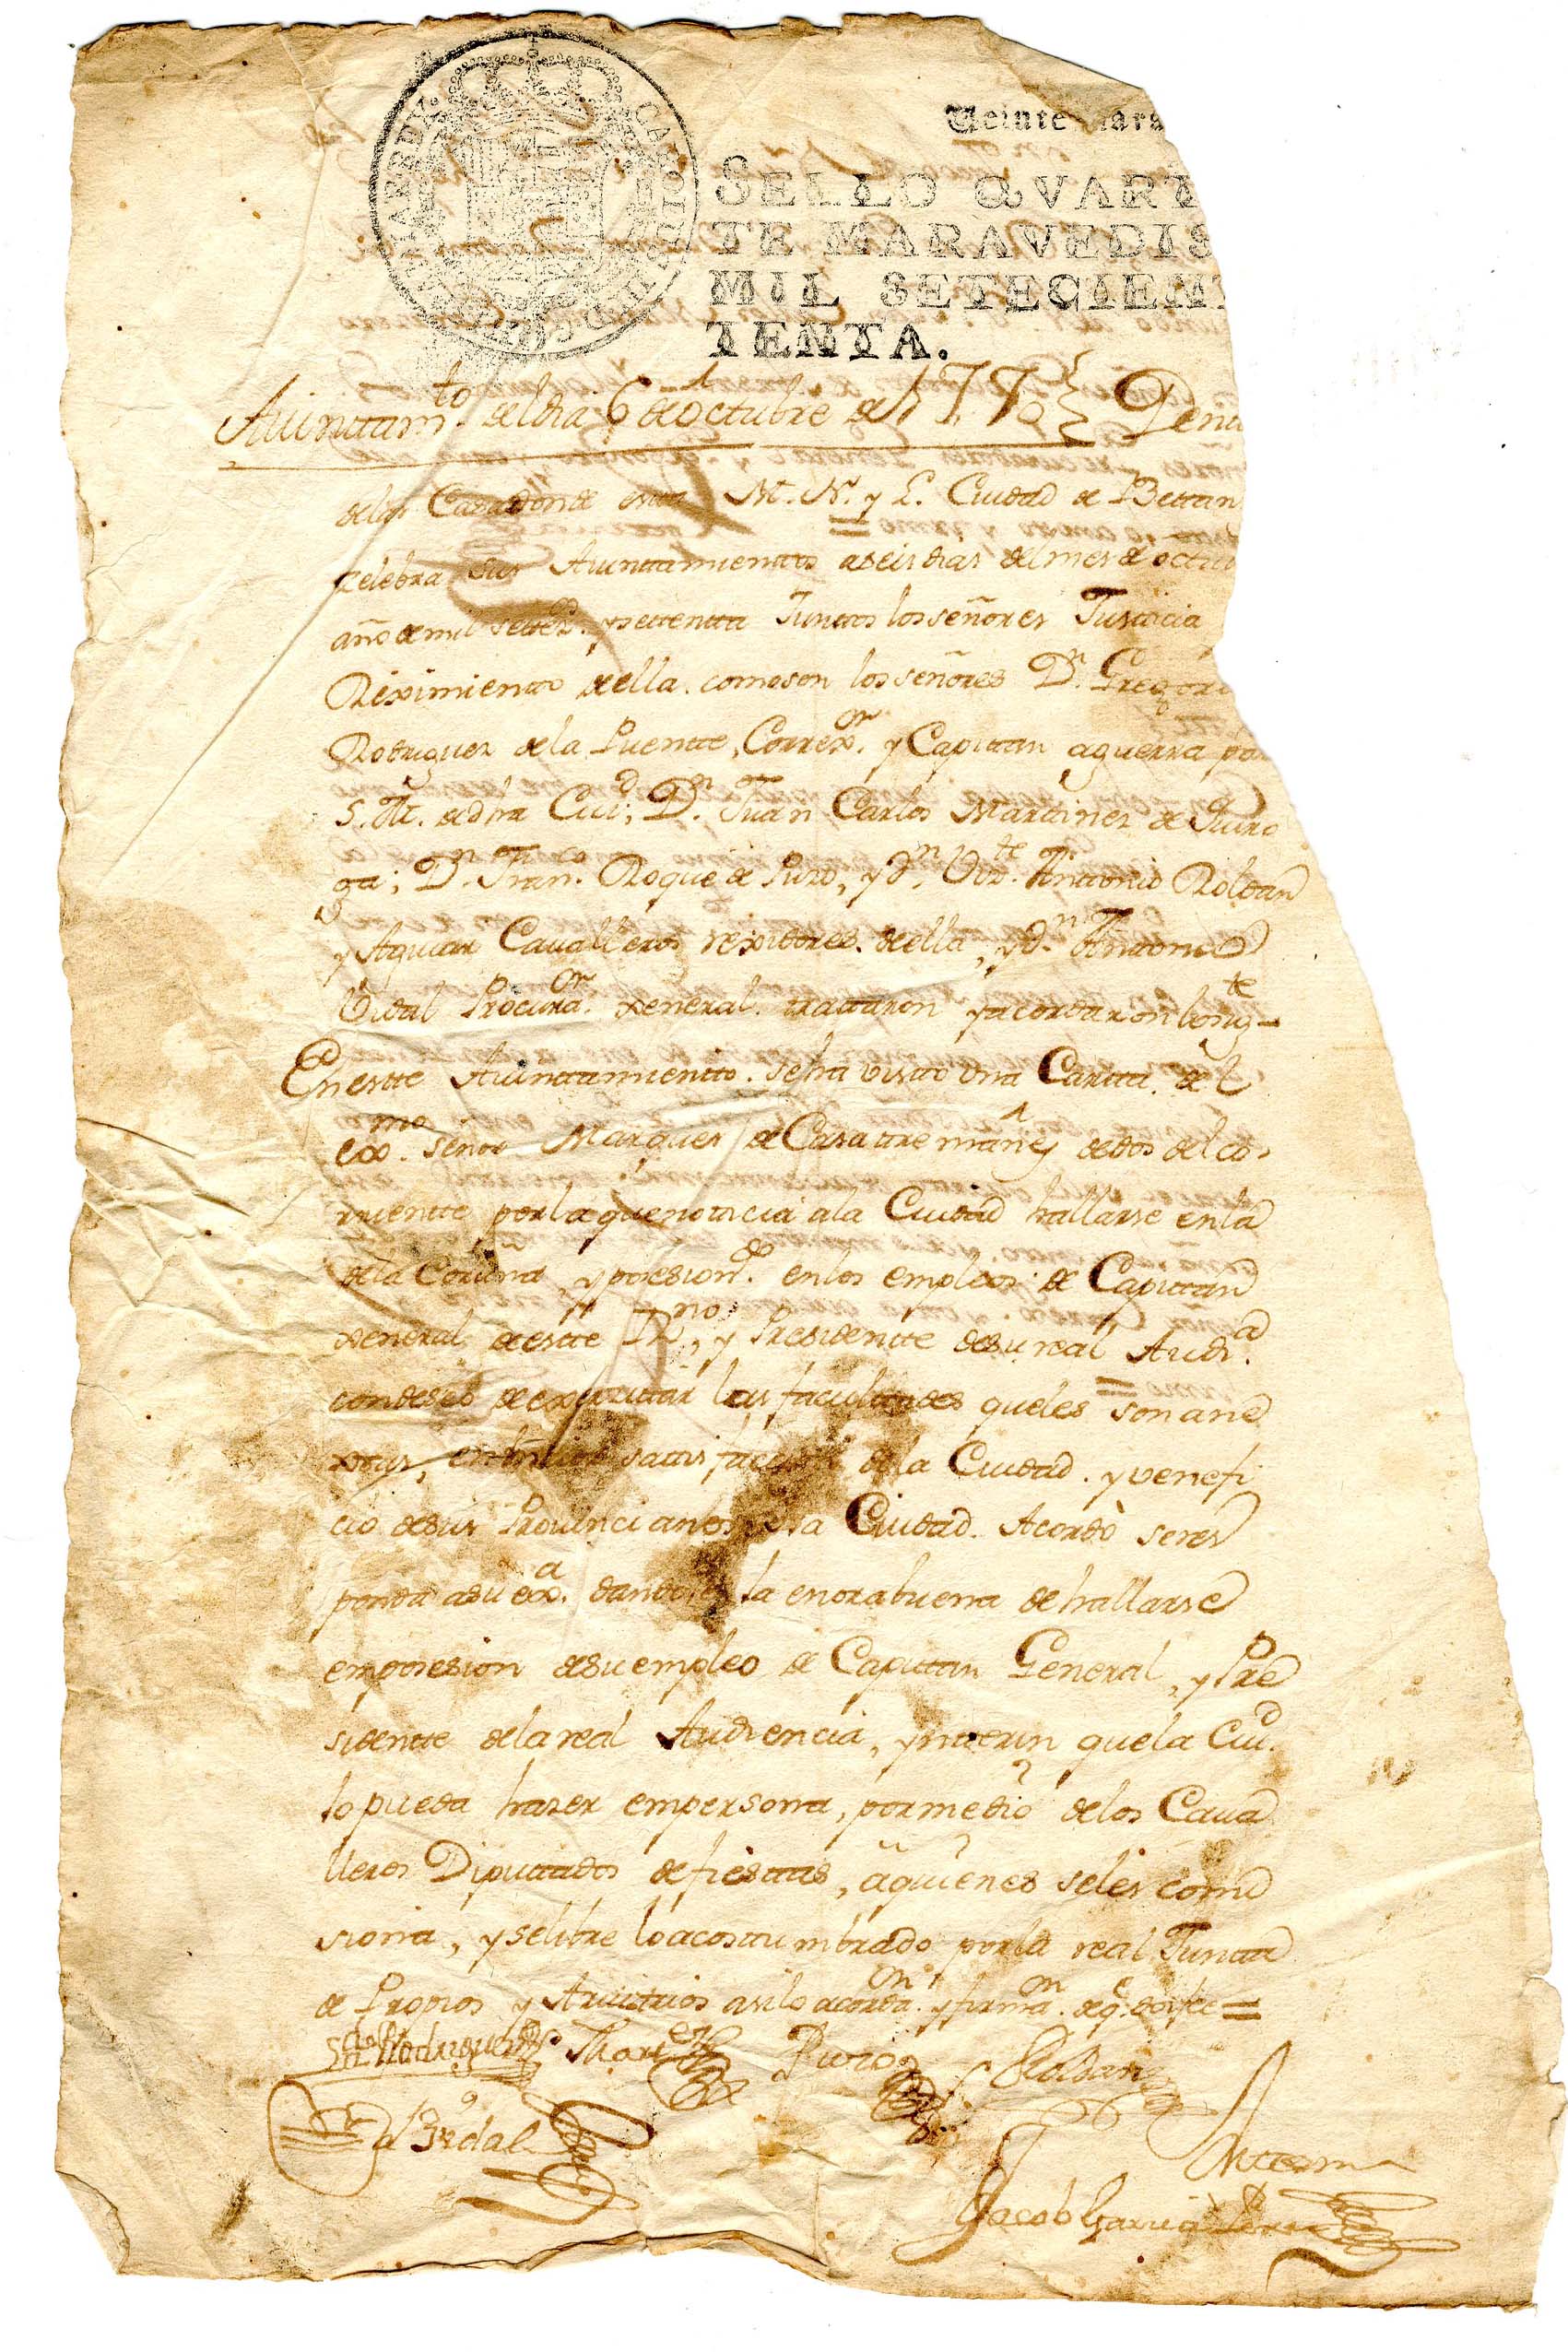 Veinte mara
CAROLUS III D G HISPANIAR REX
SELLO QVART
TE MARAVEDIS
MIL SETECIENT
TENTA.
Aiuntamto. del dia 6 de Octubre de 1770 Dent
delas Casas donde esta M. N. y L. Ciudad de Bettan
zelebra sus Aiuntamientos a seis dias del mes de octub
año de mil settezs. y settentta Junttos los señores Justicia
Reximiento de ella. como son los señores Dn. Gregorio
Rodriguez de la Puentte, Correxor. y Capittan a guerra por
S. M. de dha Ciud; Dn. Juan Carlos Martinez de Quiro
ga; Dn. Franco. Roque de Puzo, y Dn. Vizte. Antonio Roldan
y Aguiar Cavalleros rexidores. de ella, y Dn. Anttonio
Vidal Procuraor. xeneral. trattaron y acordaron lo sigte
En estte Aiunttamientto. se ha visto una Cartta. de el
exmo. señor Marques de Casa tremañes de dos del co
rrientte por la que noticia a la Ciudad hallarse en la
de la Coruña, y posesiondo. en los empleos de Capittan
xeneral de estte Rno, y Presidentte de su real Audia.
con deseo de exerzittar las facultades que les son ane
xas, en satisfacion de la Ciudad. y venefi
cio de sus Provincianos la Ciudad. Acordò se res
ponda a su exa. dandole la enorabuena de hallarse
em posesion de su empleo de Capittan General, y Pre
sidentte de la real Audiencia, ynterin que la Ciud.
lo pueda hazer em persona, por medio de los Cava
lleros Diputtados de fiesttas, a quienes se les comi
siona, y se libre lo acostumbrado por la real Juntta
de Propios y Arvitrios asi lo acordaon. y firmaon. de q. doi fe =
Rodriguez Marez Puzo Roldan
Vidal
Antte mi
Jacob Garcia